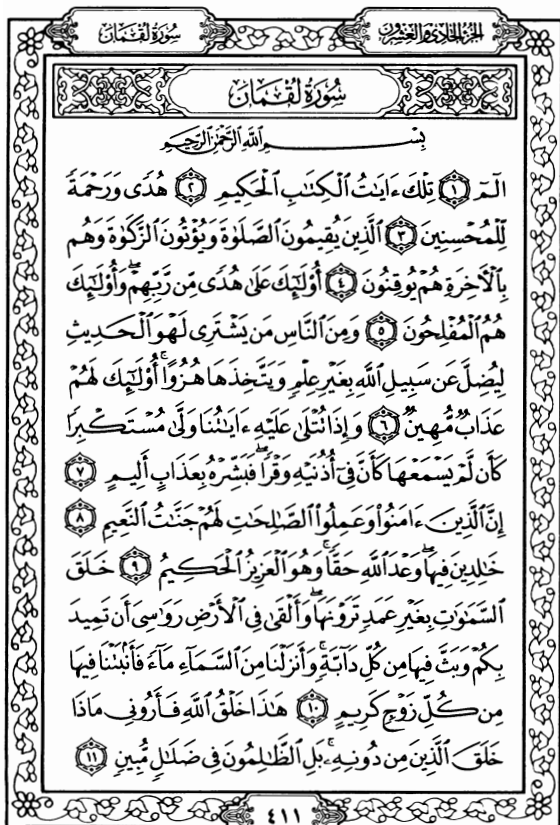 الجزء الحادي والعشرون
سورة لقمان
سُورَةُ لُقْمَانَ
بِسْمِ ٱللَّهِ ٱلرَّحْمَٰنِ ٱلرَّحِيمِ
الٓمٓ ١ تِلْكَ ءَايَٰتُ ٱلْكِتَٰبِ ٱلْحَكِيمِ ٢ هُدًى وَرَحْمَةً
لِّلْمُحْسِنِينَ ٣ ٱلَّذِينَ يُقِيمُونَ ٱلصَّلَوٰةَ وَيُؤْتُونَ ٱلزَّكَوٰةَ وَهُم
بِٱلْءَاخِرَةِ هُمْ يُوقِنُونَ ٤ أُو۟لَٰٓئِكَ عَلَىٰ هُدًى مِّن رَّبِّهِمْ ۖ وَأُو۟لَٰٓئِكَ
هُمُ ٱلْمُفْلِحُونَ ٥ وَمِنَ ٱلنَّاسِ مَن يَشْتَرِى لَهْوَ ٱلْحَدِيثِ
لِيُضِلَّ عَن سَبِيلِ ٱللَّهِ بِغَيْرِ عِلْمٍ وَيَتَّخِذَهَا هُزُوًا ۚ أُو۟لَٰٓئِكَ لَهُمْ
عَذَابٌ مُّهِينٌ ٦ وَإِذَا تُتْلَىٰ عَلَيْهِ ءَايَٰتُنَا وَلَّىٰ مُسْتَكْبِرًا
كَأَن لَّمْ يَسْمَعْهَا كَأَنَّ فِىٓ أُذُنَيْهِ وَقْرًا ۖ فَبَشِّرْهُ بِعَذَابٍ أَلِيمٍ ٧
إِنَّ ٱلَّذِينَ ءَامَنُوا۟ وَعَمِلُوا۟ ٱلصَّٰلِحَٰتِ لَهُمْ جَنَّٰتُ ٱلنَّعِيمِ ٨
خَٰلِدِينَ فِيهَا ۖ وَعْدَ ٱللَّهِ حَقًّا ۚ وَهُوَ ٱلْعَزِيزُ ٱلْحَكِيمُ ٩ خَلَقَ
ٱلسَّمَٰوَٰتِ بِغَيْرِ عَمَدٍ تَرَوْنَهَا ۖ وَأَلْقَىٰ فِى ٱلْأَرْضِ رَوَٰسِىَ أَن تَمِيدَ
بِكُمْ وَبَثَّ فِيهَا مِن كُلِّ دَآبَّةٍ ۚ وَأَنزَلْنَا مِنَ ٱلسَّمَآءِ مَآءً فَأَنۢبَتْنَا فِيهَا
مِن كُلِّ زَوْجٍ كَرِيمٍ ١٠ هَٰذَا خَلْقُ ٱللَّهِ فَأَرُونِى مَاذَا
خَلَقَ ٱلَّذِينَ مِن دُونِهِۦ ۚ بَلِ ٱلظَّٰلِمُونَ فِى ضَلَٰلٍ مُّبِينٍ ١١
٤١١